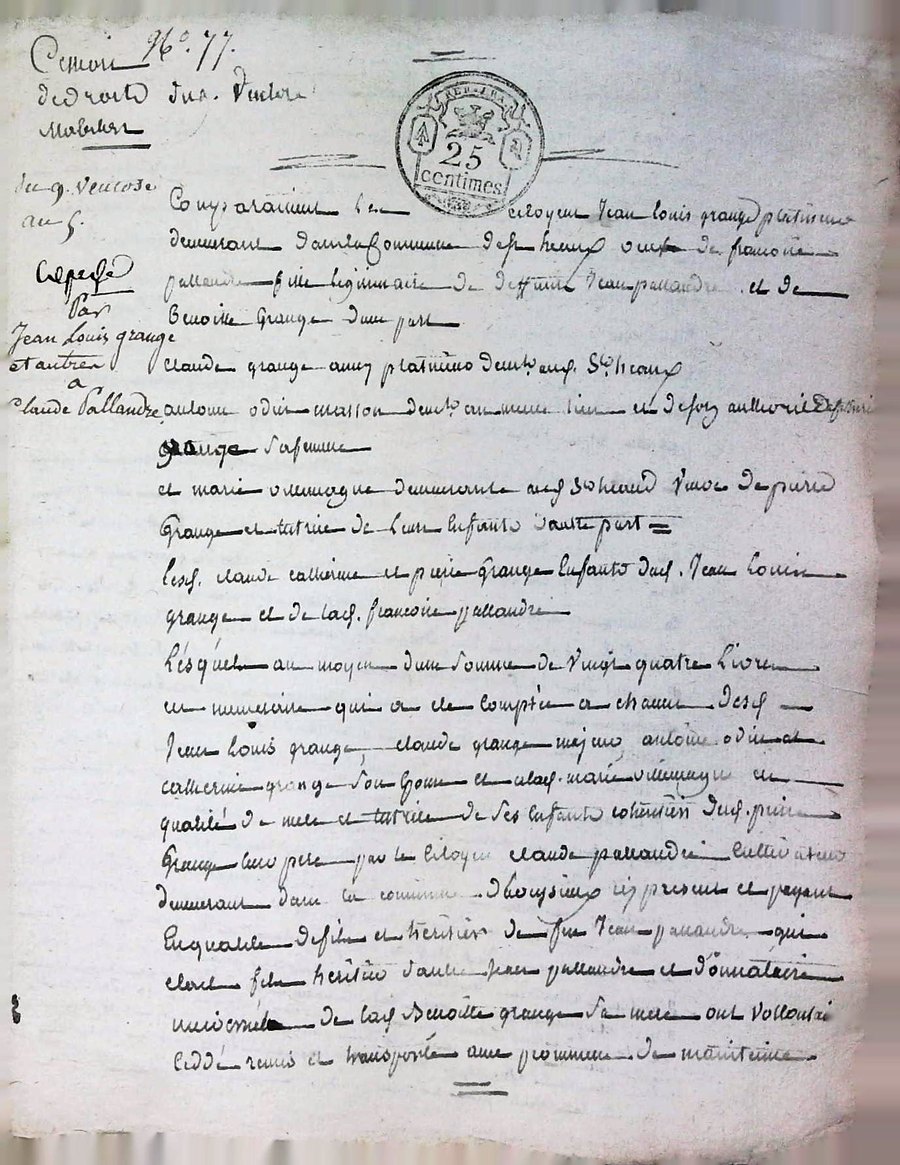 N°. 77.
Cession
de droits du 9. Ventose
Mobiliers
REP. FRA.
25
centimes
du 9. Ventose
an 5.
Expedié
Par
Jean Louis grange
et autres
a
Claude Pallandre
Comparaissent citoyen Jean Louis grange platrier
demeurant dans la Commune de st heaux de francoise
pallandre fille legitimaire de deffunt Jean pallandre et de
Benoitte Grange d'une part
claude grange aussi demt aud. St heaux
antoine odin masson demt au meme lieu et de soy authorisé
grange sa femme
et marie villemagne demeurante aud St heaux Veuve de pierre
Grange et tutrice de leurs Enfants d'autre part =
lesd. claude catherine et pierre Grange Enfants dud. Jean Louis
grange et de lad. francoise pallandre
Lésquels au moyen d'une somme de Vingt quatre Livres
en numeraire qui a été Comptée a chacun desd
Jean Louis grange, claude grange majeur, antoine odin et
catherine grange son Epouse et a lad. marie villemagne en
qualité de mere et tutrice de ses Enfants cohéritiers dud. pierre
Grange leur pere par le Citoyen claude pallandre Cultivateur
demeurant dans la commune icy present et payant
En qualité de fils et héritier de feu Jean pallandre qui
etoit fils héritier d'autre Jean pallandre et donnataire
universelle de lad Benoitte grange sa mere ont Vollontairement
Ceddé remis et transporté avec promesse de maintenue